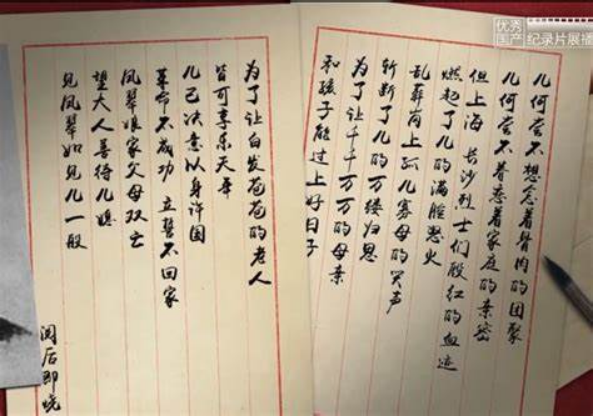 优秀
国产 纪录片展播
儿何尝不想念着骨肉的团聚
儿何尝不眷恋着家庭的亲密
但上海 长沙烈士们殷红的血迹
燃起了儿的满腔怒火
乱葬岗上孤儿寡母的哭声
斩断了儿的万缕归思
为了让千千万万的母亲
和孩子能过上好日子
为了让白发苍苍的老人
皆可享乐天年
儿已决意以身许国
革命不成功 立誓不回家
凤翠娘家父母双亡
望大人善待儿媳
见凤翠如见儿一般
阅后即烧